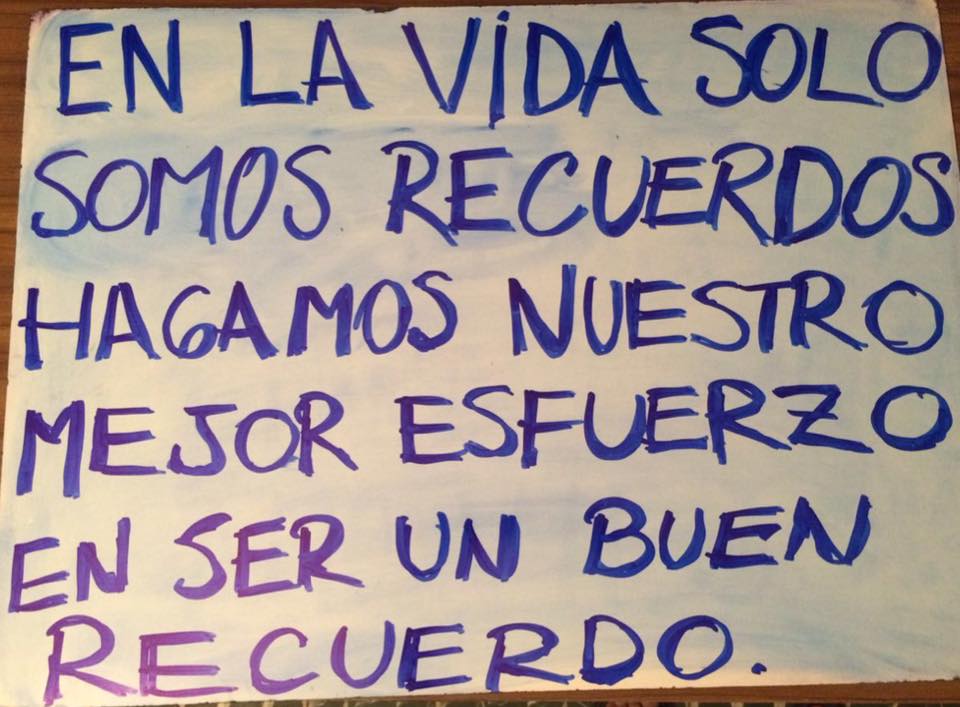 EN LA ViDA SOLO
SOMOS RECUERDOS
HAGAMOS NUESTRO
MEJOR ESFUERZO
EN SER UN BUEN
RECUERDO.